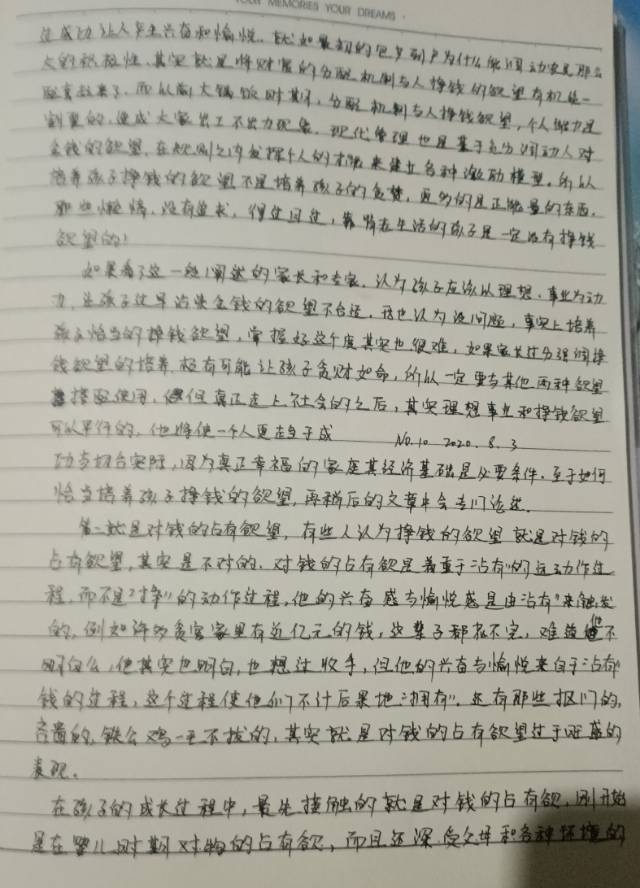 YOUR MEMORIES YOUR DREAMS
让人产生兴奋和愉悦。就如最初的包产到户为什么能调动农民那么
大的积极性，其实就是将财富的分配机制与人挣钱的欲望有机统一
起来了。而从前大锅饭时期，分配机制与人挣钱欲望，个人能力是
割裂的，造成大家出工不出力现象。现代管理也是基于充分调动人对
金钱的欲望，在规则之内发挥个人的才能来建立各种激励模型。所以
培养孩子挣钱的欲望不是培养孩子的贪婪，更多的是正能量的东西。
那些懒惰、没有追求，得过且过，靠啃老生活的孩子是一定没有挣钱
欲望的！
如果看了这一段阐述的家长和专家，认为孩子应该以理想、事业为动
力，让孩子过早沾染金钱的欲望不合适，我也认为没问题，事实上培养
孩子恰当的挣钱欲望，掌握好这个度其实也很难，如果家长过分强调挣
钱欲望的培养，极有可能让孩子贪财如命，所以一定要与其他两种欲望
搭配使用，但真正走上社会的之后，其实理想事业和挣钱欲望
可以并行的，他将使一个人更在乎于成
No.10 2020.8.3
功与切合实际，因为真正幸福的家庭其经济基础是必要条件，至于如何
恰当培养孩子挣钱的欲望，再稍后的文章中会专门论述。
第二就是对钱的占有欲望，有些人认为挣钱的欲望就是对钱的
占有欲望，其实是不对的，对钱的占有欲是着重于"占有"的这动作过
程，而不是"挣"的动作过程，他的兴奋感与愉悦感是由"占有"来触发
的，例如许多贪官家里有近亿元的钱，这辈子都花不完，难道他不
明白么，他其实也明白，也想过收手，但他的兴奋与愉悦来自于"占有"
钱的过程，这个过程使他们不计后果地"拥有"。还有那些抠门的，
吝啬的，铁公鸡一毛不拔的，其实就是对钱的占有欲望过于旺盛的
表现。
在孩子的成长过程中，最先接触的就是对钱的占有欲，刚开始
是在婴儿时期对物的占有欲，而且还深受父母和各种环境的